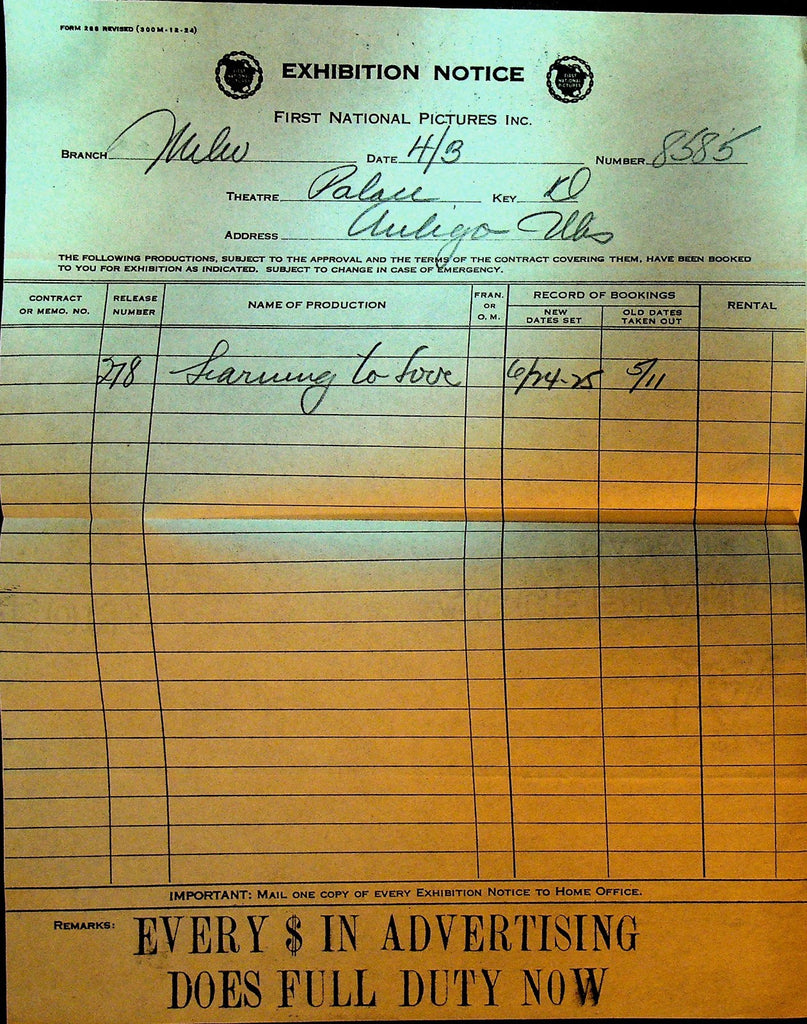 FORM 288 REVISED (300M-12-24)
EXHIBITION NOTICE
FIRST NATIONAL PICTURES
FIRST NATIONAL PICTURES
FIRST NATIONAL PICTURES INC.
BRANCH Milw DATE 4/3 NUMBER 8585
THEATRE Palace KEY
ADDRESS Antigo Wis
THE FOLLOWING PRODUCTIONS, SUBJECT TO THE APPROVAL AND THE TERMS OF THE CONTRACT COVERING THEM, HAVE BEEN BOOKED
TO YOU FOR EXHIBITION AS INDICATED. SUBJECT TO CHANGE IN CASE OF EMERGENCY.
CONTRACT OR MEMO. NO. RELEASE NUMBER NAME OF PRODUCTION FRAN. OR O. M. RECORD OF BOOKINGS NEW DATES SET OLD DATES TAKEN OUT RENTAL
278 Learning to Love 6/24-25 5/11
IMPORTANT: MAIL ONE COPY OF EVERY EXHIBITION NOTICE TO HOME OFFICE.
REMARKS: EVERY $ IN ADVERTISING
DOES FULL DUTY NOW